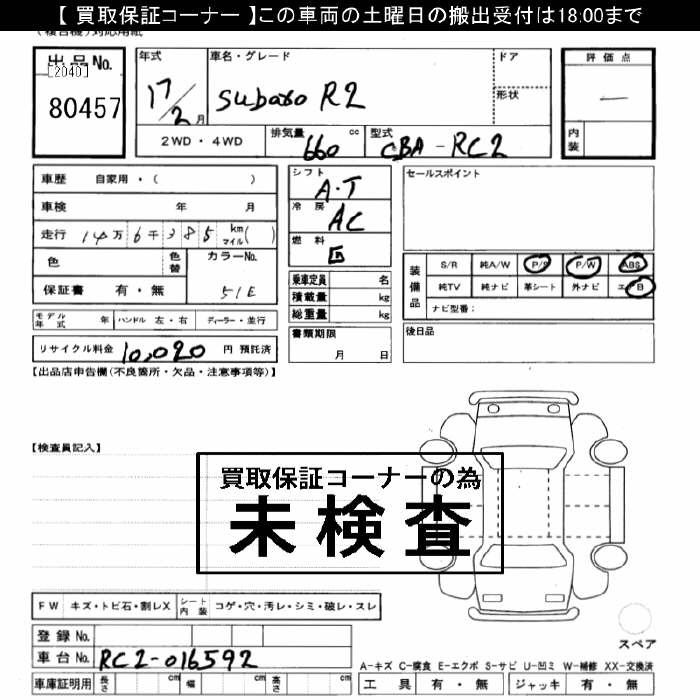 【 買取保証コーナー 】この車両の土曜日の搬出受付は18:00まで
出品No.
[2040]
80457
年式
17/2月
車名・グレード
Subaro R2
ドア
形状
2WD ・ 4WD
排気量 660 cc
型式 CBA-RC2
評価点
—
内装
車歴 自家用・( )
車検 年 月
走行 14万6千385 km マイル( )
色
色替
カラーNo.
51E
保証書 有・無
シフト
A・T
冷房
AC
燃料
G
セールスポイント
装備品
S/R 純A/W P/S P/W ABS
純TV 純ナビ 革シート 外ナビ エアB
ナビ型番：
乗車定員 名
積載量 kg
総重量 kg
モデル年式 年 ハンドル 左・右 ディーラー・並行
書類期限
月 日
後日品
リサイクル料金 10,020 円 預託済
【出品店申告欄(不良箇所・欠品・注意事項等)】
【検査員記入】
買取保証コーナーの為
未検査
FW キズ・トビ石・割レX シート内装 コゲ・穴・汚レ・シミ・破レ・スレ
登録No.
車台No. RC2-016592
スペア
A-キズ C-腐食 E-エクボ S-サビ U-凹ミ W-補修 XX-交換済
車庫証明用 長さ cm 幅 cm 高さ cm
工具 有・無 ジャッキ 有・無